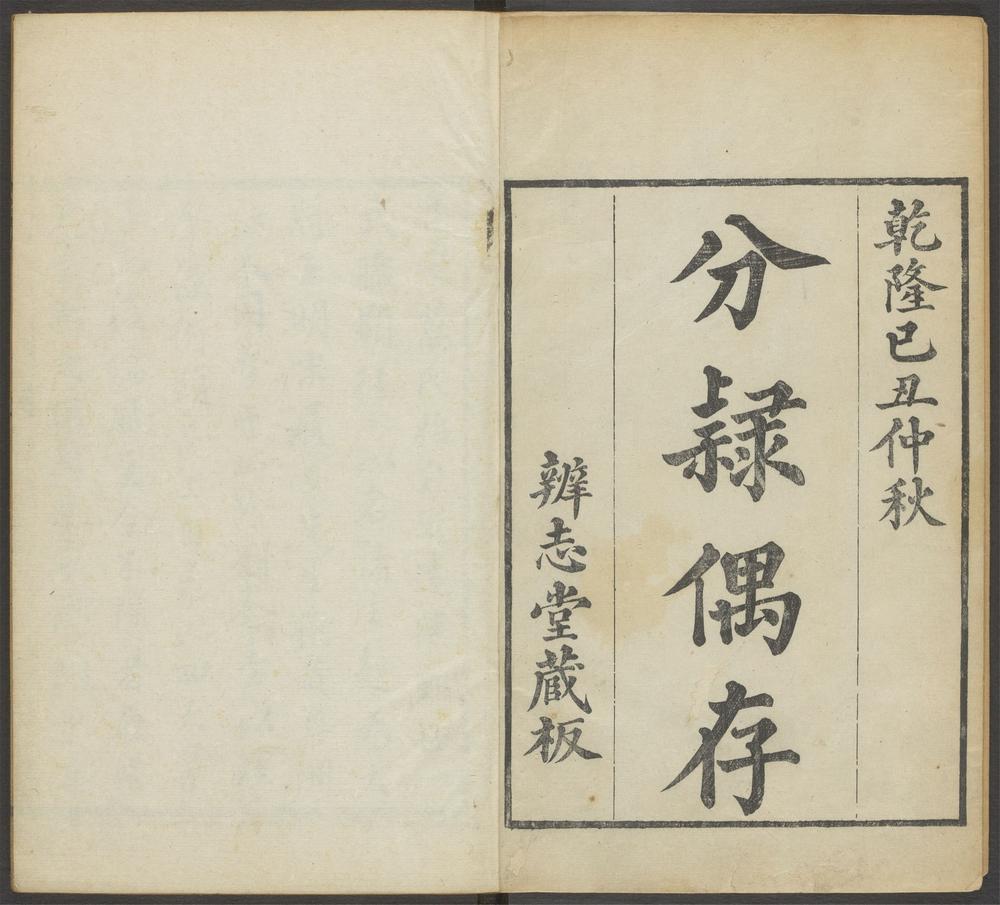 乾隆己丑仲秋
分隸偶存
辨志堂藏板